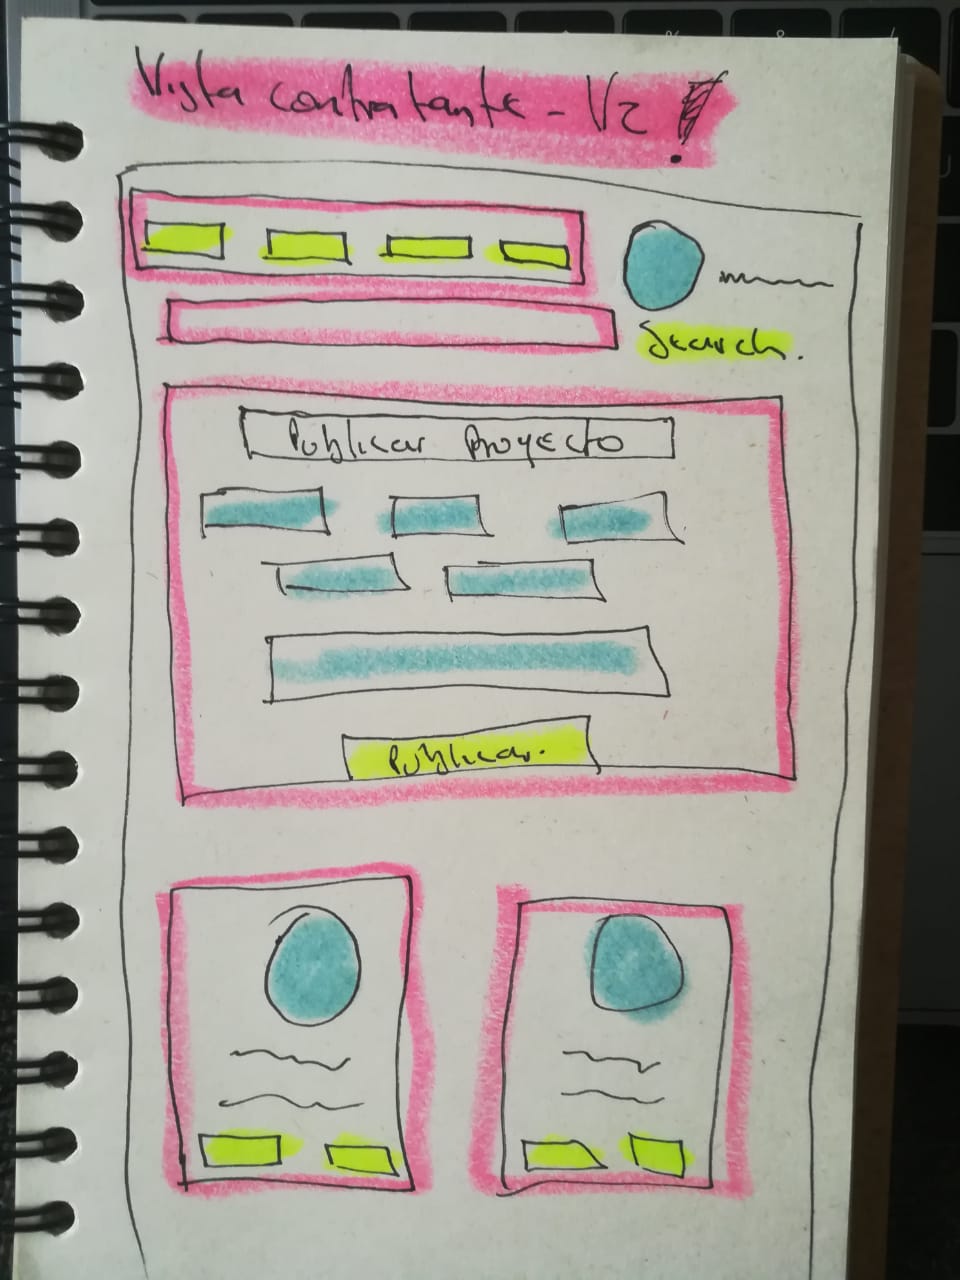 Vista contratante - V2 !
Search.
Publicar Proyecto
Publicar.